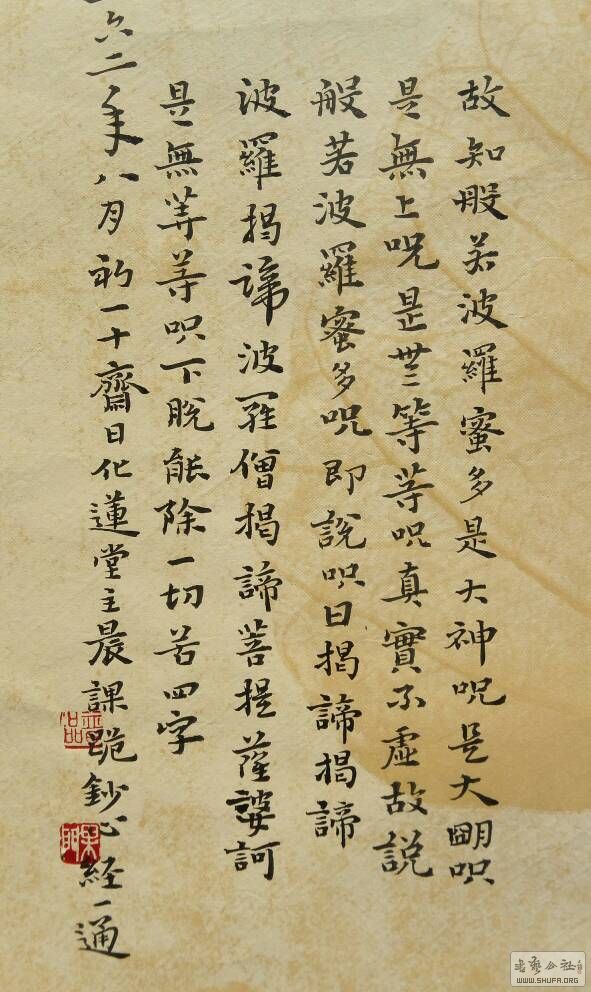 故知般若波羅蜜多是大神呪是大明呪
是無上呪是無等等呪真實不虛故說
般若波羅蜜多呪即說呪曰揭諦揭諦
波羅揭諦波羅僧揭諦菩提薩婆訶
是無等等呪下脫能除一切苦四字
六二年八月初一十齋日化蓮堂主晨課跪鈔心経一通
书艺公社
WWW.SHUFA.ORG